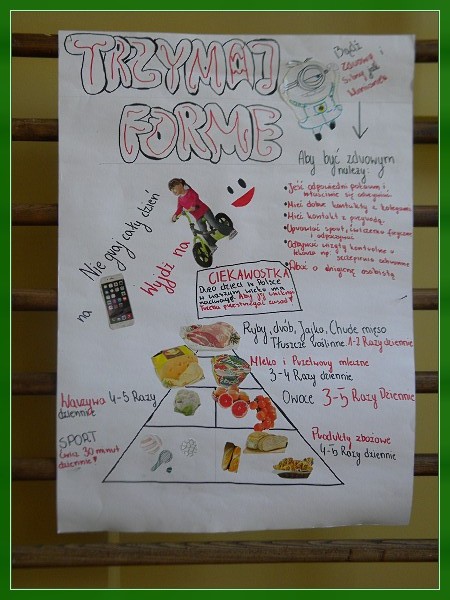 TRZYMAJ
FORMĘ
Bądź
Zdrowy i
Silny jak
Minionek
Aby być zdrowym
należy:
• Jeść odpowiedni pokarm i
właściwie się odżywiać
• Mieć dobre kontakty z kolegami
• Mieć kontakt z przyrodą
• Uprawiać sport, ćwiczenia fizyczne
i odpoczywać
• Odbywać wizyty kontrolne u
lekarza np. szczepienia ochronne
• Dbać o higienę osobistą
Nie graj cały dzień
na
Wyjdź na
CIEKAWOSTKA
Dużo dzieci w Polsce
w waszym wieku ma
nadwagę. Aby jej uniknąć
trzeba przestrzegać zasad!
Ryby, drób, Jajko, Chude mięso
Tłuszcze roślinne 1-2 Razy dziennie
Mleko i Przetwory mleczne
3-4 Razy dziennie
Owoce 3-5 Razy Dziennie
Warzywa 4-5 Razy
dziennie
SPORT
ćwicz 30 minut
dziennie!
Produkty zbożowe
4-5 Razy dziennie